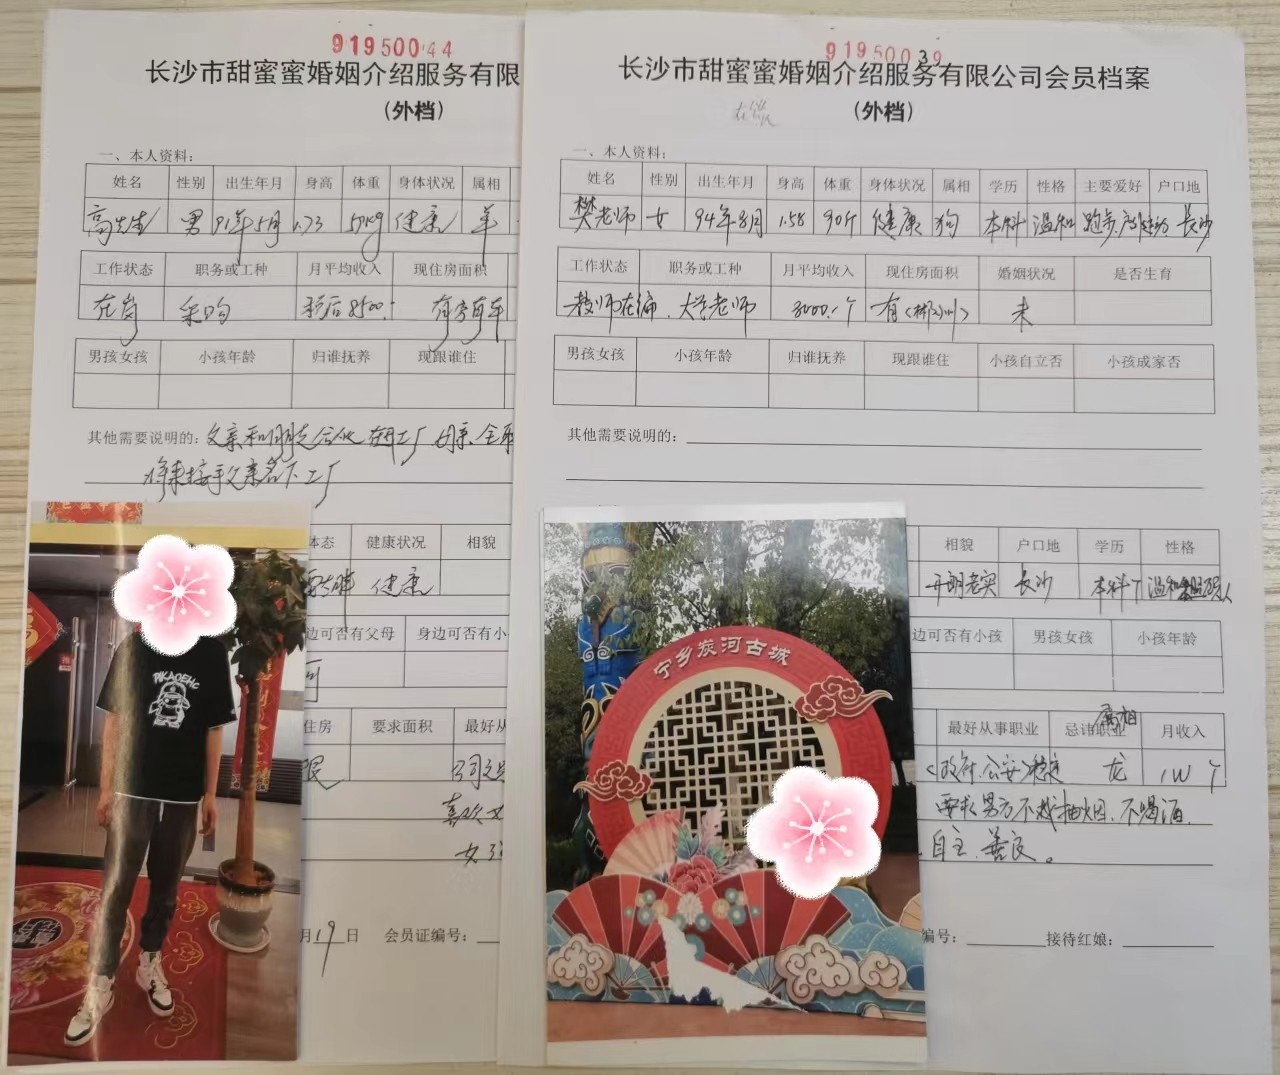 91950044
长沙市甜蜜蜜婚姻介绍服务有限
(外档)
一、本人资料:
姓名 性别 出生年月 身高 体重 身体状况 属相
高先生 男 91年5月 1.73 59kg 健康 羊
工作状态 职务或工种 月平均收入 现住房面积
在岗 采购 税后8500. 有房有车
男孩女孩 小孩年龄 归谁抚养 现跟谁住
其他需要说明的: 父亲和朋友合伙 工厂 母亲
将来接手父亲名下工厂
体态 健康状况 相貌
健康
边可否有父母 身边可否有小
可
住房 要求面积 最好从
限
喜欢
女
月19日 会员证编号:
PIKAOEHC
91950039
长沙市甜蜜蜜婚姻介绍服务有限公司会员档案
(外档)
一、本人资料:
姓名 性别 出生年月 身高 体重 身体状况 属相 学历 性格 主要爱好 户口地
樊老师 女 94年8月 1.58 90斤 健康 狗 本科 温和 跑步、 长沙
工作状态 职务或工种 月平均收入 现住房面积 婚姻状况 是否生育
教师在编 大学老师 8000.1个 有(郴州) 未
男孩女孩 小孩年龄 归谁抚养 现跟谁住 小孩自立否 小孩成家否
其他需要说明的:
相貌 户口地 学历 性格
开朗老实 长沙 本科 温和
边可否有小孩 男孩女孩 小孩年龄
最好从事职业 忌讳职业 属相 月收入
(政府、公安)稳定 龙 1W个
要求男方不戒抽烟、不喝酒,
自主、善良。
编号: 接待红娘:
宁乡炭河古城